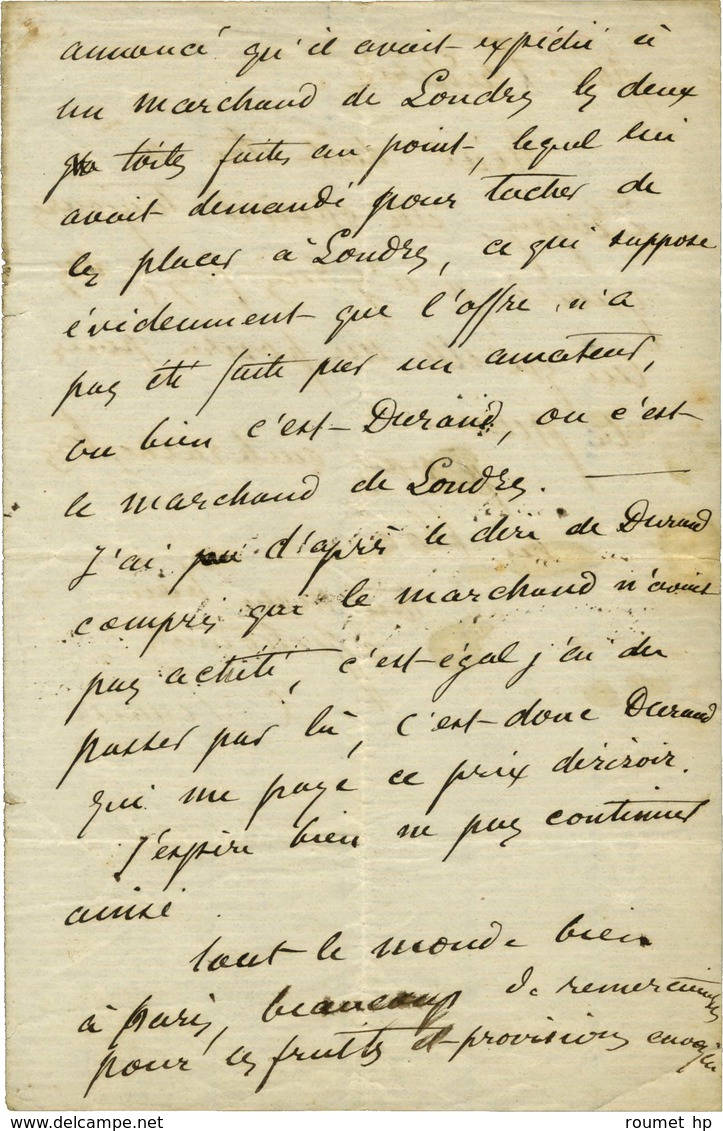 annoncé qu'il avait expédié à
un marchand de Londres les deux
toiles faites au point, lequel lui
avait demandé pour tacher de
les placer à Londres, ce qui suppose
évidemment que l'offre n'a
pas été faite par un amateur,
ou bien c'est Durand, ou c'est
le marchand de Londres. —
J'ai d'après le dire de Durand
compris que le marchand n'avait
pas acheté, c'est égal j'ai du
passer par là, c'est donc Durand
qui me paye ce prix dérisoir.
J'espère bien ne pas continuer
ainsi.
tout le monde bien
à Paris, beaucoup de remerciements
pour les fruits et provisions envoyés
roumet hp